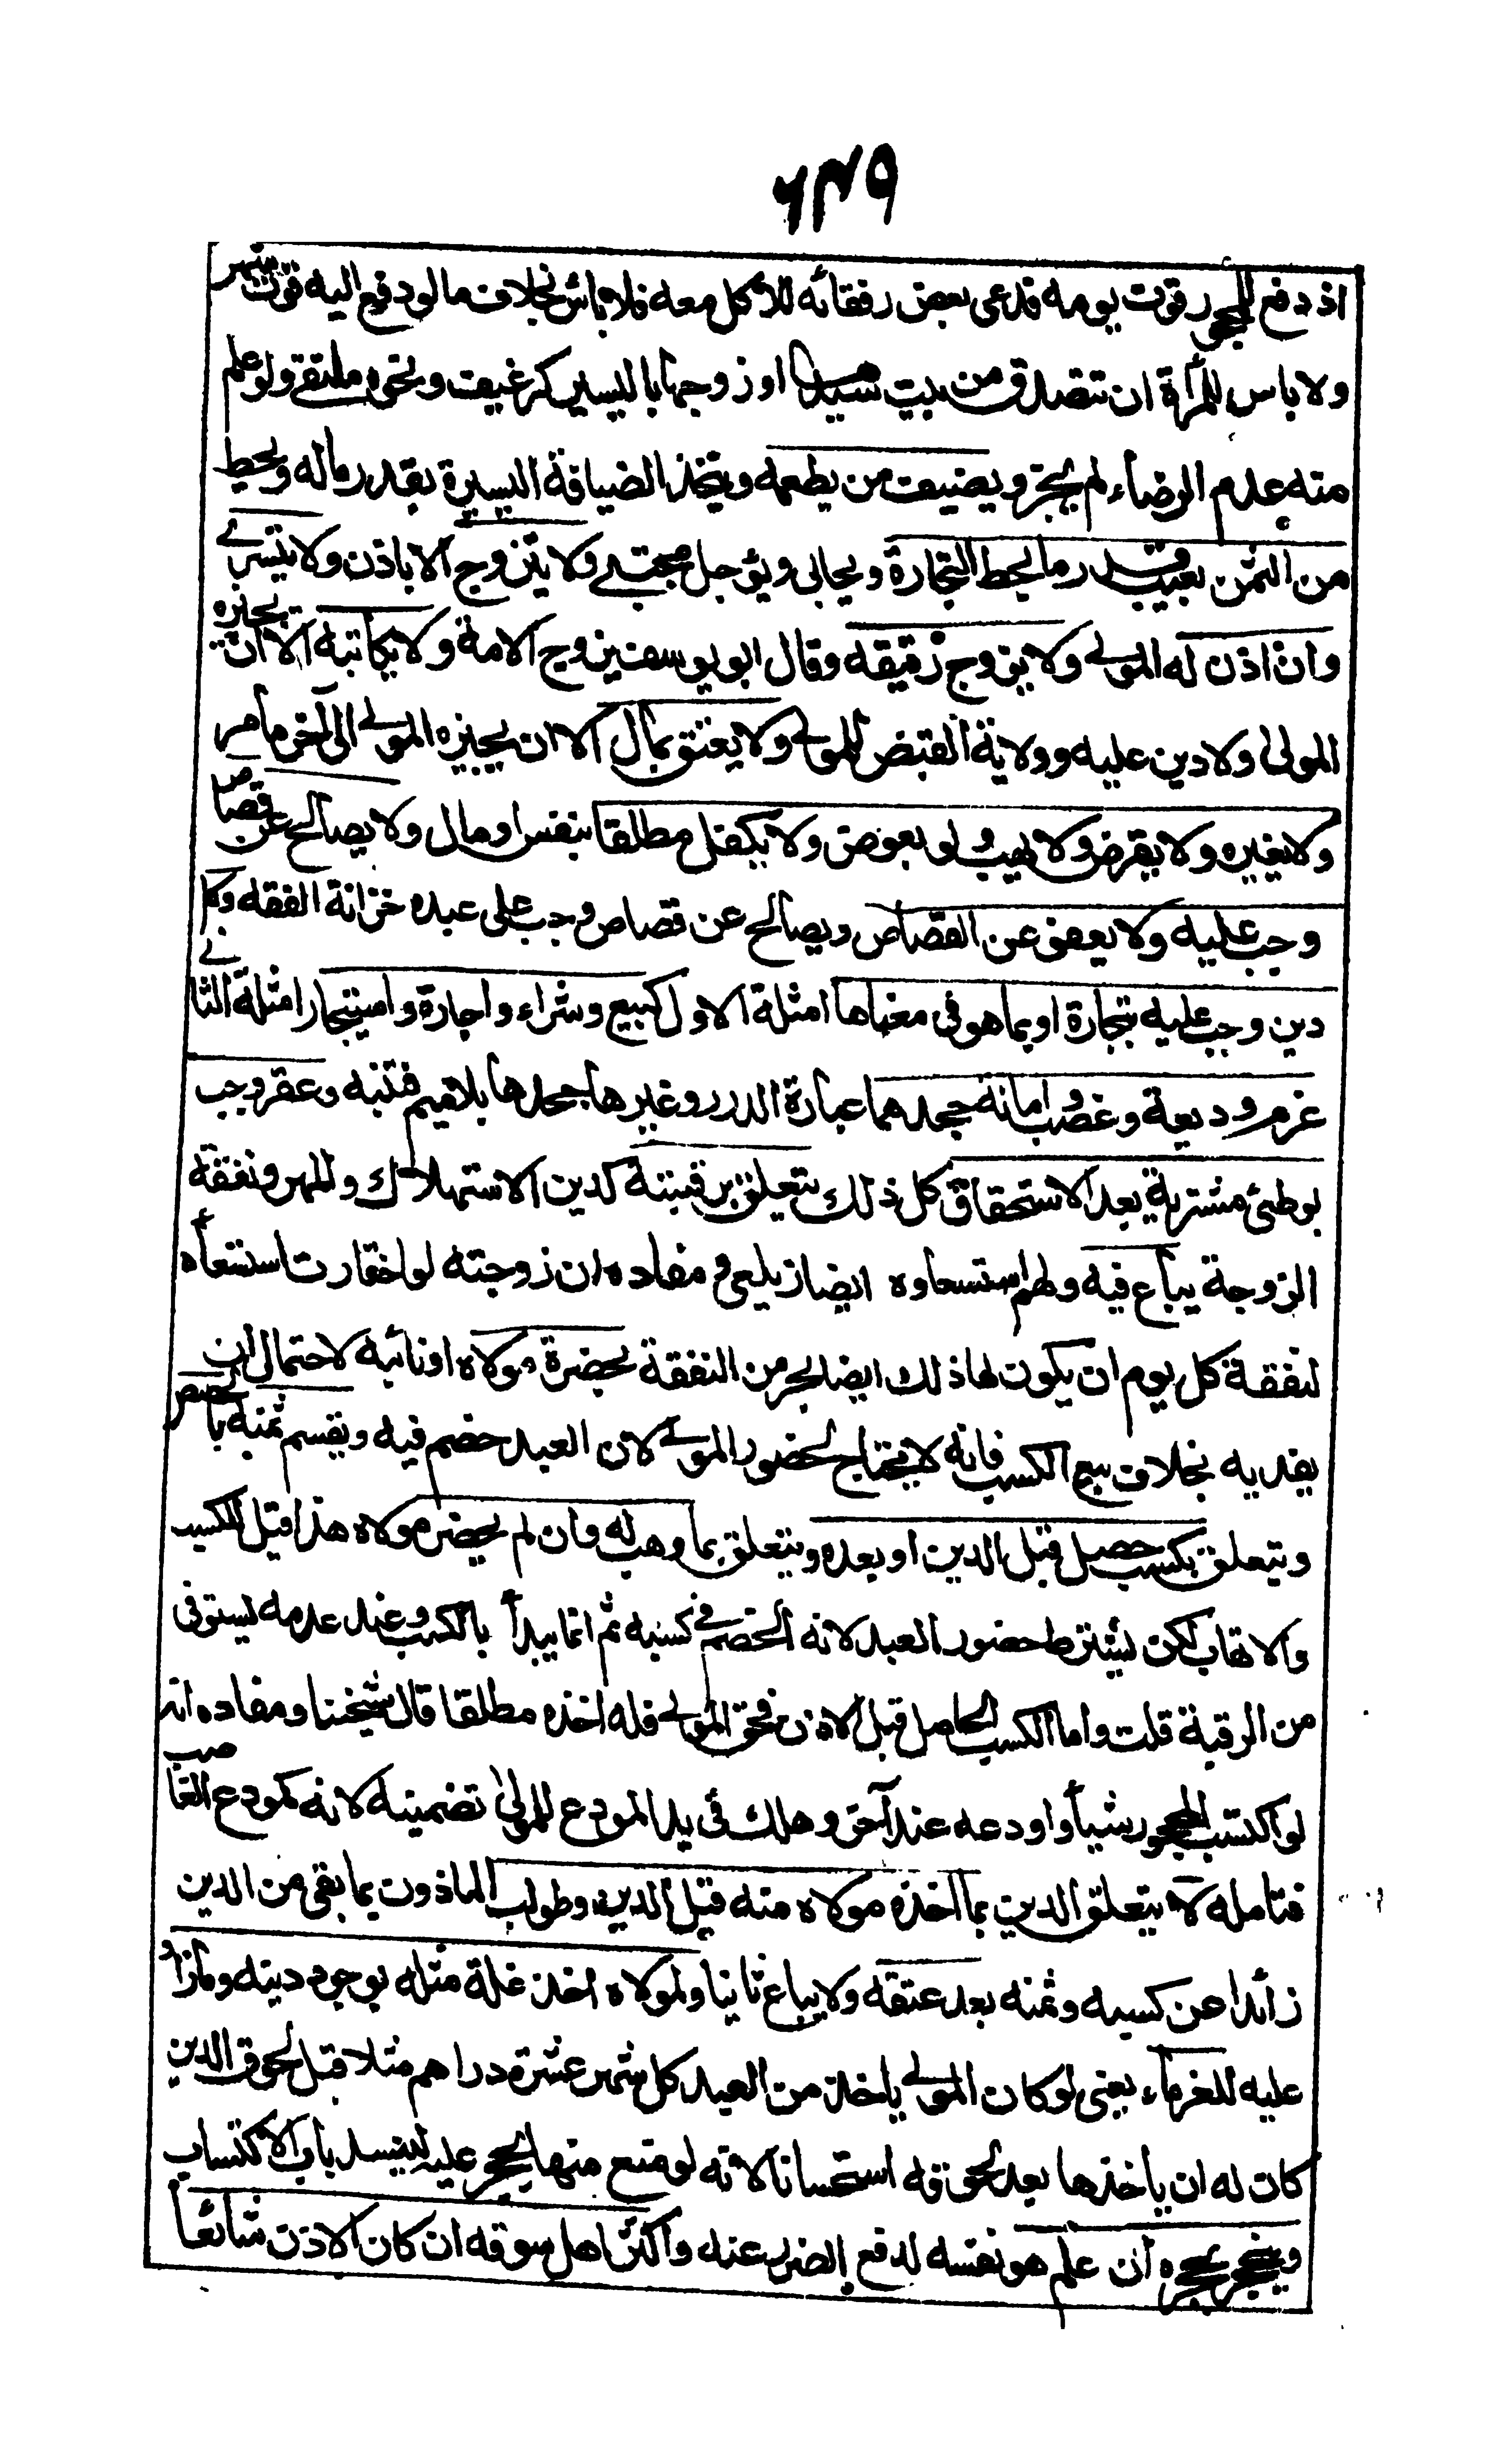 ٦٣٩
اذ دفع للمحجور قوت يومه فدعى بعض رفقائه للاكل معه فلا باس بخلاف ما لو دفع اليه قوت شهر
ولا باس للمرأة ان تتصدق من بيت سيدها او زوجها باليسير كرغيف ونحوه ملتقى ولو علم
منه عدم الرضاء لم يجز ويضيف من يطعمه ويتخذ الضيافة اليسيرة بقدر ماله ويحط
من الثمن بعيب قدر ما يحط التجارة ويحابى ويؤجل مجتبى ولا يتزوج الا باذن ولا يتسرى
وان اذن له المولى ولا يزوج رقيقه وقال ابو يوسف يزوج الامة ولا يكاتبه الا ان يجيزه
المولى ولا دين عليه وولاية القبض للمولى ولا يعتق بمال الا ان يجيزه المولى الى آخر ما مر
ولا بغيره ولا يقرض ولا يهب ولو بعوض ولا يكفل مطلقا بنفس او مال ولا يصالح عن قصاص
وجب عليه ولا يعفو عن القصاص ويصالح عن قصاص وجب على عبده خزانة الفقه وكل
دين وجب عليه بتجارة او بما هو فى معناها امثلة الاول كبيع وشراء واجارة واستيجار امثلة الثانى
غرم وديعة وغصب وامانة جحدهما عبارة الدرر وغيرها جحدها بلا ميم فتنبه وعقر وجب
بوطئ مشترية بعد الاستحقاق كل ذلك يتعلق برقبته كدين الاستهلاك والمهر ونفقة
الزوجة يباع فيه ولهم استسعاوه ايضا زيلعى ومفاده ان زوجته لو اختارت استسعأه
لنفقة كل يوم ان يكون لها ذلك ايضا بحر من النفقة بحضرة مولاه او نائبه لاحتمال ان
يفديه بخلاف بيع الكسب فانه لا يحتاج لحضور المولى لان العبد خصم فيه ويقسم ثمنه بالحصص
ويتعلق بكسب حصل قبل الدين او بعده ويتعلق بما وهب له وان لم يحضر مولاه هذا قيل للكسب
والاتهاب لكن يشترط حضور العبد لانه الخصم فى كسبه ثم انما يبدأ بالكسب وعند عدمه يستوفى
من الرقبة قلت واما الكسب الحاصل قبل الاذن فحق المولى فله اخذه مطلقا قال شيخنا ومفاده انه
لو اكتسب المحجور شيأ واودعه عند آخر وهلك فى يد المودع للمولى تضمينه لانه كمودع الغاصب
فتامله لا يتعلق الدين بما اخذه مولاه منه قبل الدين وطولب الماذون بما بقى من الدين
زائدا عن كسبه وثمنه بعد عتقه ولا يباع ثانيا ولمولاه اخذ غلة مثله بوجود دينه وما زاد
عليه للغرماء يعنى لو كان المولى ياخذ من العبد كل شهر عشرة دراهم مثلا قبل لحوق الدين
كان له ان ياخذها بعد لحوقه استحسانا لانه لو منع منها يحجر عليه فينسد باب الاكتساب
وينحجر بحجره ان علم هو نفسه لدفع الضرر عنه واكثر اهل سوقه ان كان الاذن شائعا